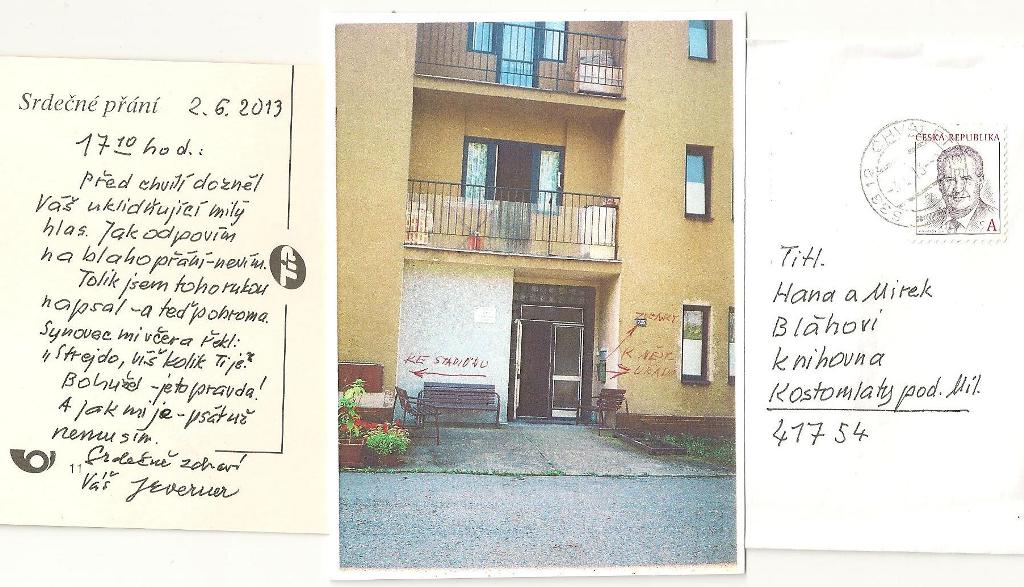 Srdečné přání 2.6.2013
17 10 hod.:
Před chvílí dozněl
Váš uklidňující milý
hlas. Jak odpovím
na blahopřání-nevím.
Tolik jsem toho rukou
napsal - a teď pohroma.
Synovec mi včera řekl:
"Strejdo, víš kolik Ti je?"
Bohužel - je to pravda!
A jak mi je - psát už
nemusím.
Srdečně zdraví
Váš
11
KE STADIONU
K MĚST.
ÚŘADU
ČESKÁ REPUBLIKA
A
533 12 CHVAL
Titl.
Hana a Mirek
Bláhovi
knihovna
Kostomlaty pod. Mil.
417 54